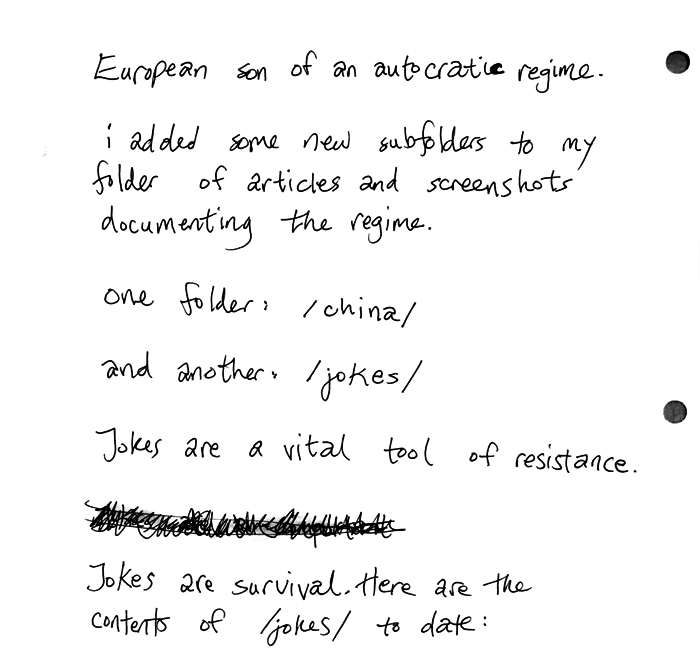 European son of an autocratic regime.
i added some new subfolders to my
folder of articles and screenshots
documenting the regime.
one folder: /china/
and another: /jokes/
Jokes are a vital tool of resistance.
Jokes are survival. Here are the
contents of /jokes/ to date: